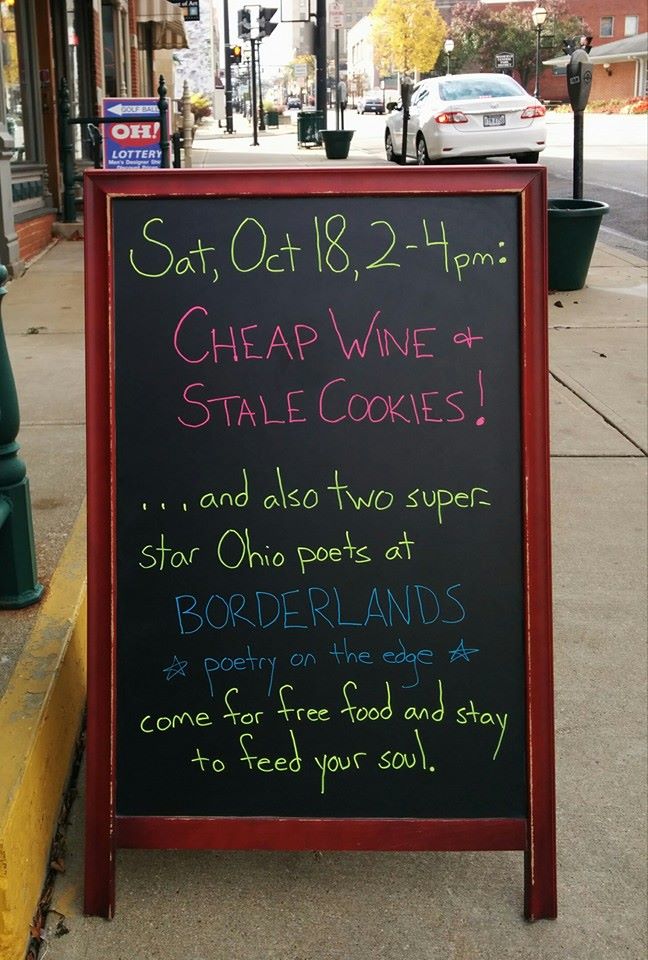 GOLF BAL
OH!
LOTTERY
Sat, Oct 18, 2-4pm:
CHEAP WINE +
STALE COOKIES!
...and also two super-
star Ohio poets at
BORDERLANDS
☆ poetry on the edge ☆
come for free food and stay
to feed your soul.